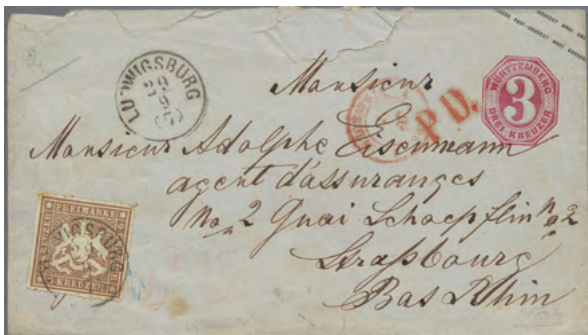 LUDWIGSBURG
20
9
(7)
WÜRTTEMBERG
3
DREI-KREUZER
P.D.
Monsieur
Monsieur Adolphe Eisenmann
agent d'assurances
No 2 Quai Schoepflin No 2
Straßbourg
Bas Rhin
FREIMARKE
KREUZER
LUDWIGSBURG